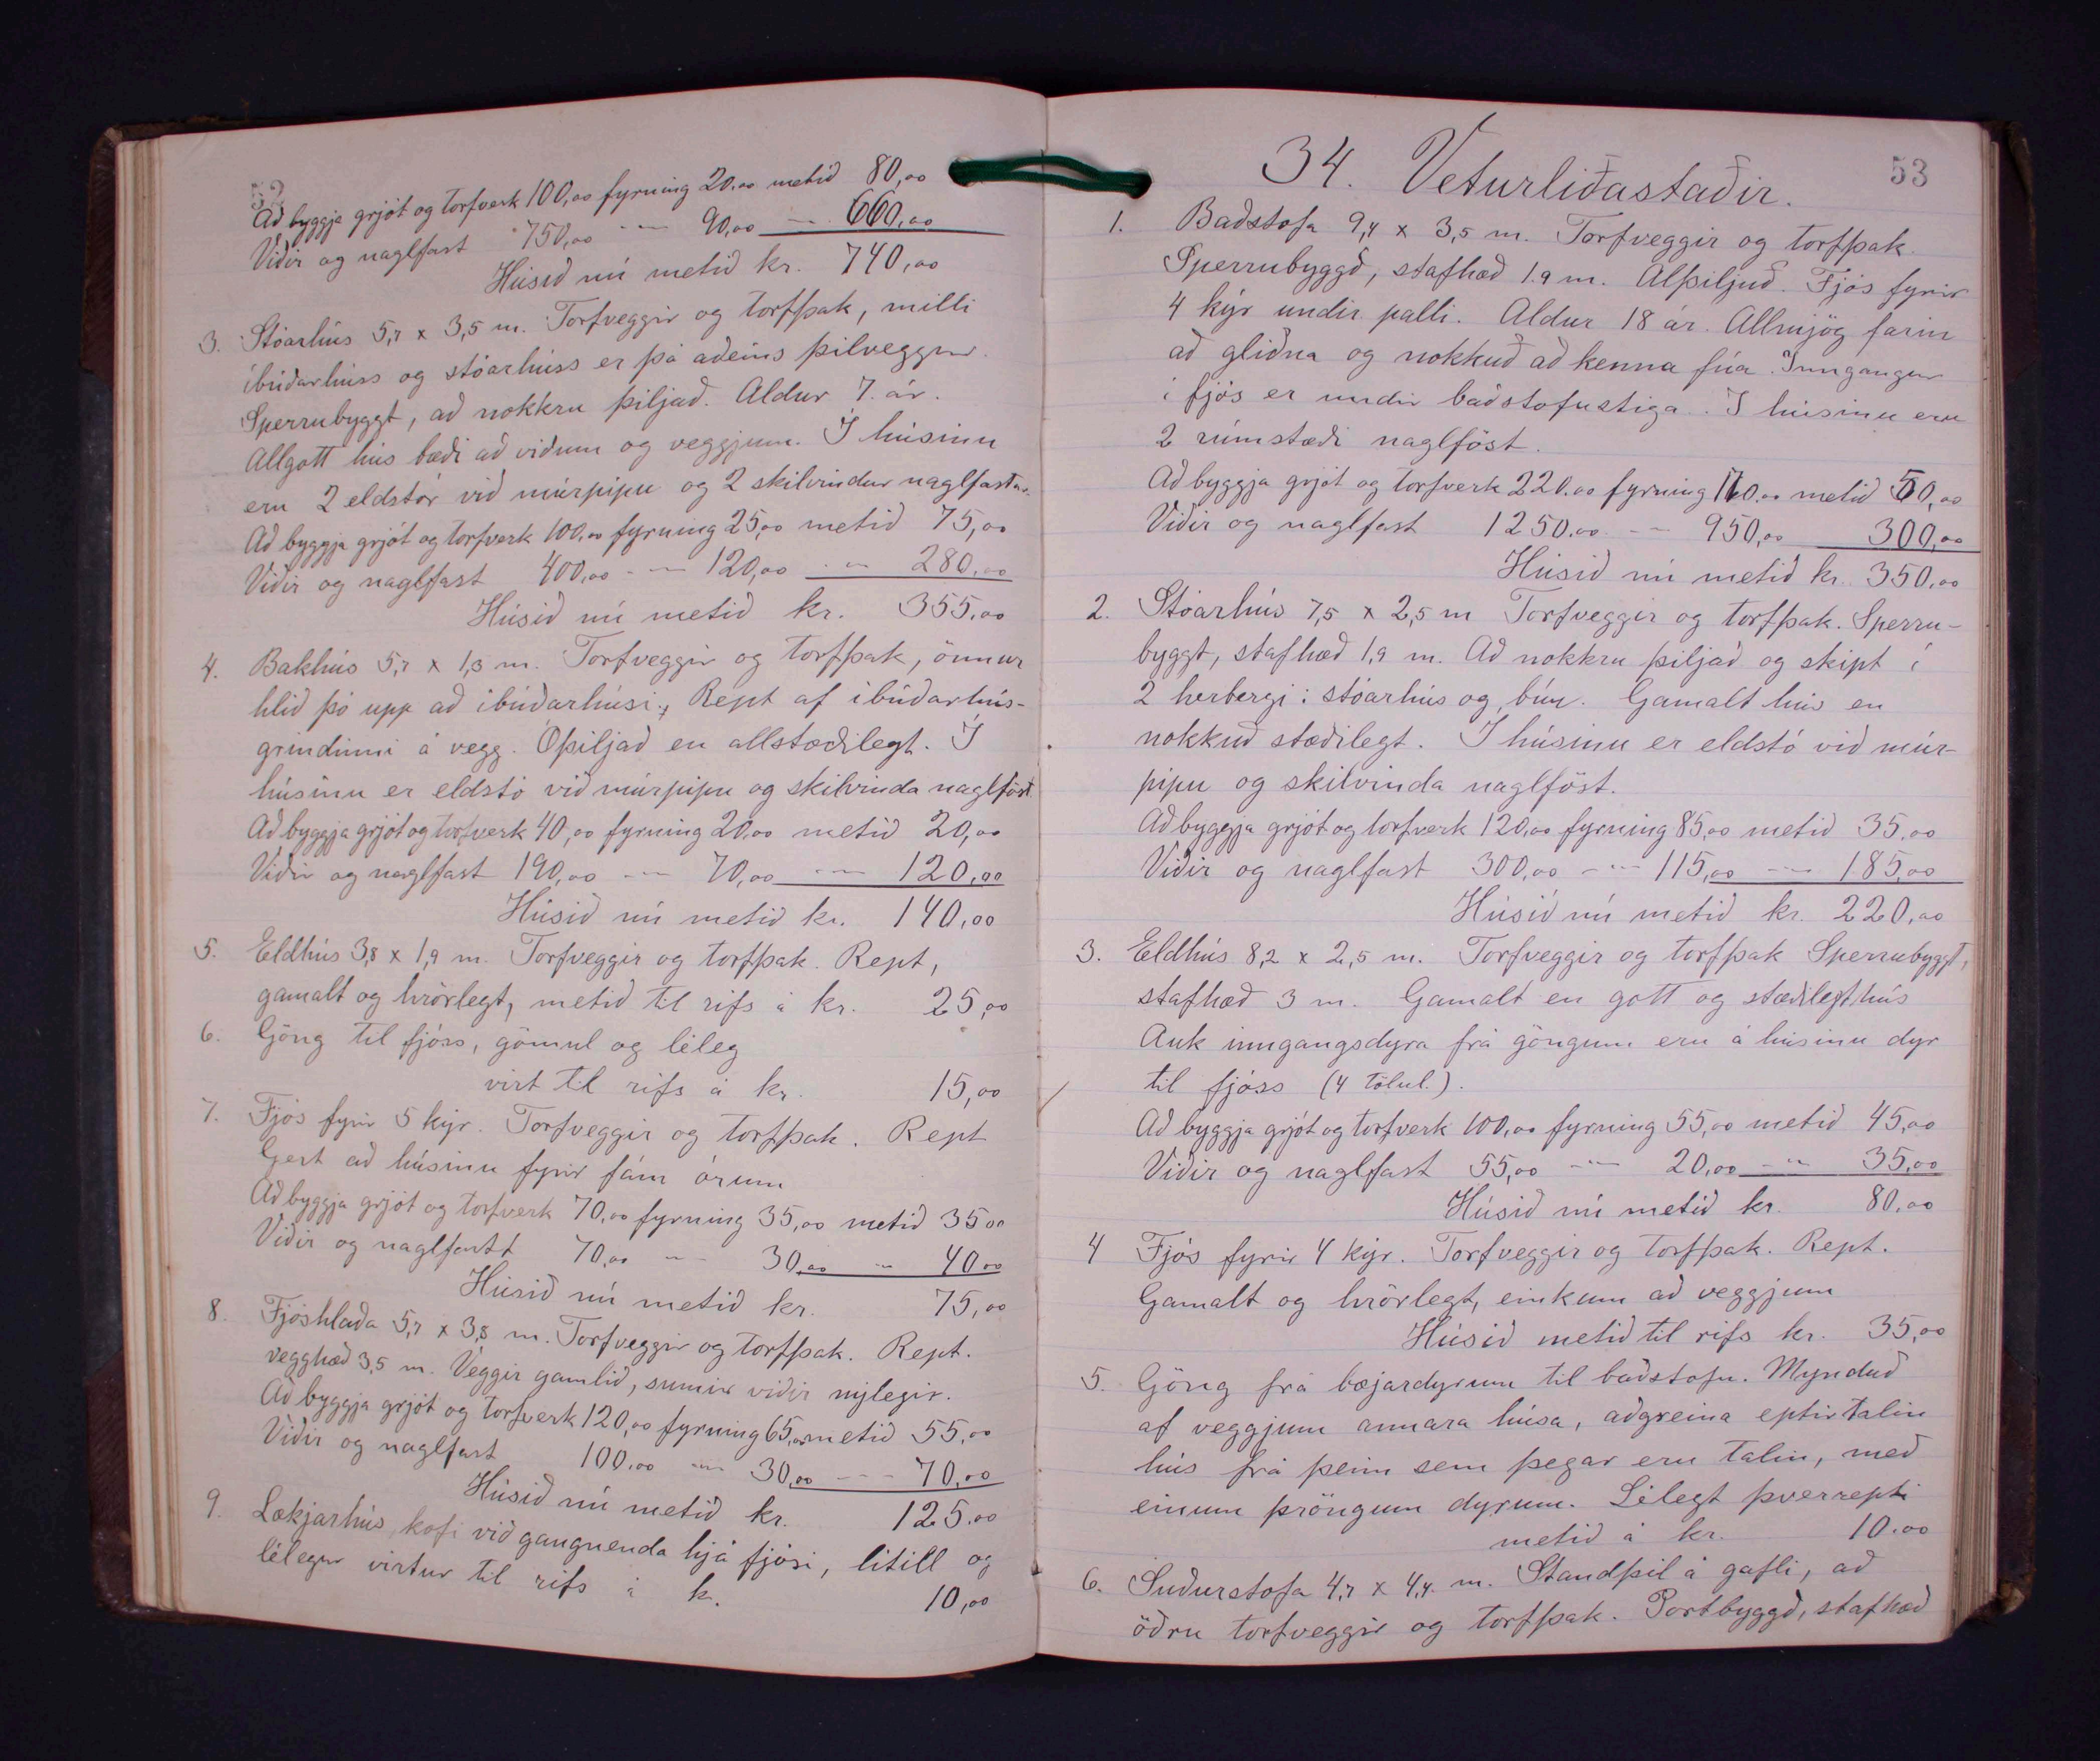 52
Að byggja grjót og torfverk 100,00 fyrning 20.00 metið 80,00
Viðir og naglfast 750,00 -"- 90,00 -"- 660,00
Húsið nú metið kr. 740,00
3. Stóarhús 5,7 x 3,5 m. Torfveggir og torfþak, milli
íbúðarhúss og stóarhúss er þá aðeins þilveggur.
Sperrubyggt, að nokkru þiljað. Aldur 7. ár.
Allgott hús bæði að viðum og veggjum. Í húsinu
eru 2 eldstór við múrpípu og 2 skilvindur naglfastar.
Að byggja grjót og torfverk 100.00 fyrning 25,00 metið 75,00
Viðir og naglfast 400,00 -"- 120,00 -"- 280,00
Húsið nú metið kr. 355.00
4. Bakhús 5,7 x 1,3 m. Torfveggir og torfþak, önnur
hlið þó upp að íbúðarhúsi, Rept af íbúðarhús-
grindinni á vegg. Óþiljað en allstæðilegt. Í
húsinu er eldstó við múrpípu og skilvinda naglföst.
Að byggja grjót og torfverk 40,00 fyrning 20,00 metið 20,00
Viðir og naglfast 190,00 -"- 70,00 -"- 120,00
Húsið nú metið kr. 140,00
5. Eldhús 3,8 x 1,9 m. Torfveggir og torfþak. Rept,
gamalt og hrörlegt, metið til rifs á kr. 25,00
6. Göng til fjóss, gömul og léleg
virt til rifs á kr. 15,00
7. Fjós fyrir 5 kýr. Torfveggir og torfþak. Rept
Gert að húsinu fyrir fám árum
Að byggja grjót og torfverk 70,00 fyrning 35,00 metið 35 00
Viðir og naglfastt 70,00 -"- 30,00 -"- 40 00
Húsið nú metið kr. 75,00
8. Fjóshlaða 5,7 x 3,8 m. Torfveggir og torfþak. Rept.
vegghæð 3,5 m. Veggir gamlið, sumir viðir nýlegir.
Að byggja grjót og torfverk 120,00 fyrning 65,00 metið 55,00
Viðir og naglfast 100.00 -"- 30,00 -"- 70,00
Húsið nú metið kr. 125.00
9. Lækjarhús, kofi við gangnenda hjá fjósi, lítill og
lélegur virtur til rifs á k. 10,00
53
34. Veturliðastaðir.
1. Baðstofa 9,4 x 3,5 m. Torfveggir og torfþak.
Sperrubyggð, stafhæð 1.9 m. Alþiljuð. Fjós fyrir
4 kýr undir palli. Aldur 18 ár. Allmjög farin
að gliðna og nokkuð að kenna fúa. Inngangur
í fjós er undir baðstofustiga. Í húsinu eru
2 rúmstæði naglföst.
Að byggja grjót og torfverk 220.00 fyrning 170.00 metið 50,00
Viðir og naglfast 1250.00 -"- 950,00 300,00
Húsið nú metið kr. 350.00
2. Stóarhús 7,5 x 2,5 m Torfveggir og torfþak. Sperru-
byggt, stafhæð 1,9 m. Að nokkru þiljað og skipt í
2 herbergi: stóarhús og búr. Gamalt hús en
nokkuð stæðilegt. Í húsinu er eldstó við múr-
pípu og skilvinda naglföst.
Að byggja grjót og torfverk 120,00 fyrning 85,00 metið 35.00
Viðir og naglfast 300,00 -"- 115,00 -"- 185,00
Húsið nú metið kr. 220,00
3. Eldhús 8,2 x 2,5 m. Torfveggir og torfþak Sperrubyggt,
stafhæð 3 m. Gamalt en gott og stæðilegt hús
Auk inngangsdyra frá göngum eru á húsinu dyr
til fjóss (4 tölul.).
Að byggja grjót og torfverk 100,00 fyrning 55,00 metið 45,00
Viðir og naglfast 55,00 -"- 20,00 -"- 35,00
Húsið nú metið kr. 80.00
4 Fjós fyrir 4 kýr. Torfveggir og torfþak. Rept.
Gamalt og hrörlegt, einkum að veggjum
Húsið metið til rifs kr. 35,00
5. Göng frá bæjardyrum til baðstofu. Mynduð
af veggjum annara húsa, aðgreina eptirtalin
hús frá þeim sem þegar eru talin, með
einum þröngum dyrum. Lélegt þverrepti
metið á kr. 10.00
6. Suðurstofa 4,7 x 4,4. m. Standþil á gafli, að
öðru torfveggir og torfþak. Portbyggð, stafhæð